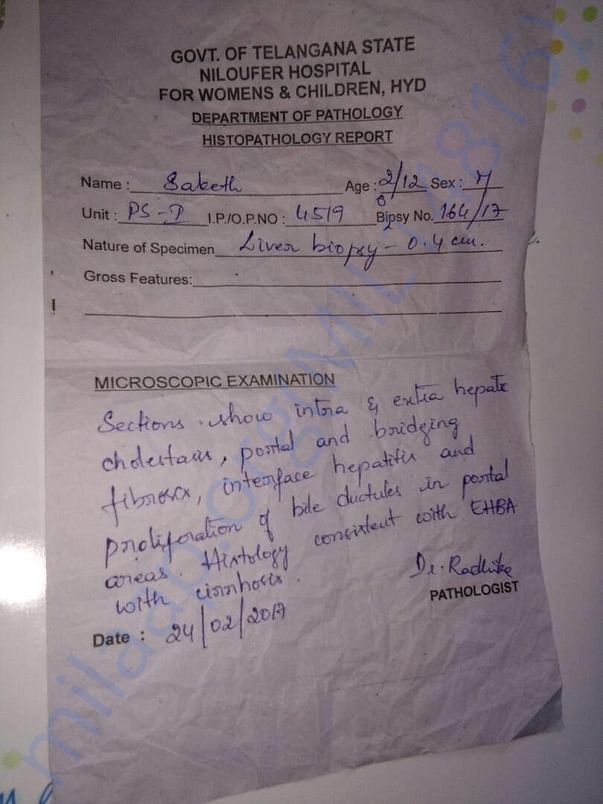 GOVT. OF TELANGANA STATE
NILOUFER HOSPITAL
FOR WOMENS & CHILDREN, HYD
DEPARTMENT OF PATHOLOGY
HISTOPATHOLOGY REPORT
Name : Saketh Age : 2/12 Sex : M
Unit : PS-I I.P/O.P.NO : 4519 Bipsy No. 164/17
Nature of Specimen Liver biopsy - 0.4 cm.
Gross Features:
MICROSCOPIC EXAMINATION
Sections show intra & extra hepatic
cholestasis, portal and bridging
fibrosis, interface hepatitis and
proliferation of bile ductules in portal
areas Histology consistent with EHBA
with cirrhosis.
Dr. Radhika
PATHOLOGIST
Date : 24/02/2017